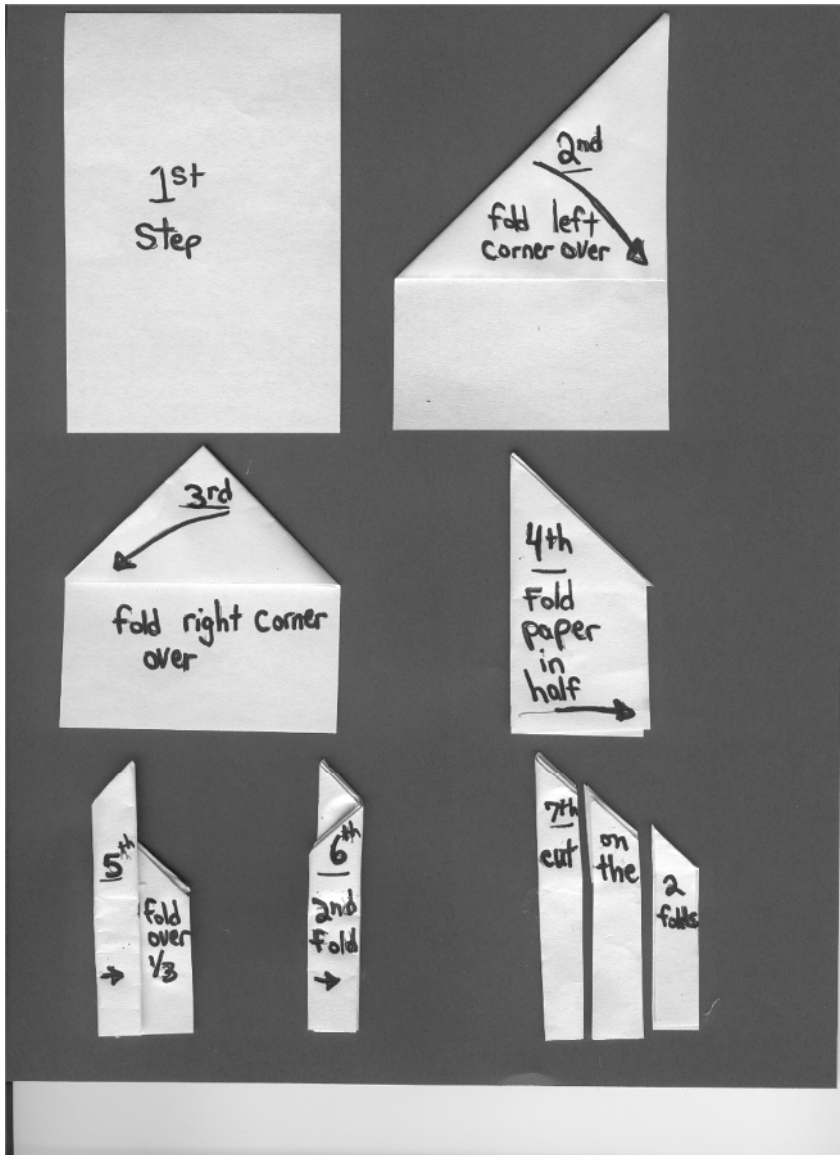 1st
Step
2nd
fold left
corner over
3rd
fold right corner
over
4th
Fold
paper
in
half
5th
fold
over
1/3
6th
2nd
Fold
7th
cut
on
the
2
folds